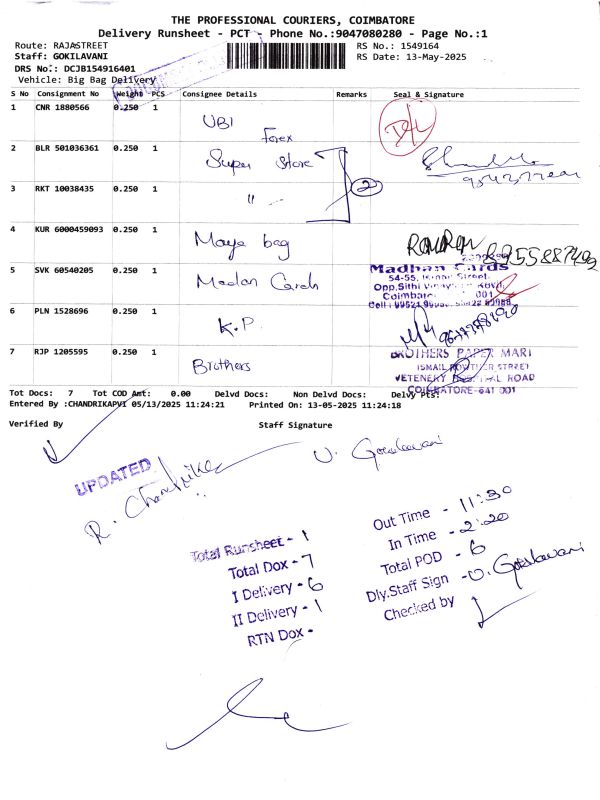 THE PROFESSIONAL COURIERS, COIMBATORE
Delivery Runsheet - PCT - Phone No.:9047080280 - Page No.:1
Route: RAJASTREET
RS No.: 1549164
Staff: GOKILAVANI
RS Date: 13-May-2025
DRS No.: DCJB154916401
Vehicle: Big Bag Delivery
S No Consignment No Weight PCS Consignee Details Remarks Seal & Signature
1 CNR 1880566 0.250 1 UBI Forex
2 BLR 501036361 0.250 1 Super Store
3 RKT 10038435 0.250 1 " 2
4 KUR 6000459093 0.250 1 Maya bag
5 SVK 60540205 0.250 1 Madan Cards
Madhan Cards
54-55,
Opp.Sithi
Coimbato 001
6 PLN 1528696 0.250 1 K.P.
7 RJP 1205595 0.250 1 Brothers
BROTHERS PAPER MART
ISMAIL ROWTHER STREET
VETENERY HOSPITAL ROAD
COIMBATORE-641 001
Tot Docs: 7 Tot COD Amt: 0.00 Delvd Docs: Non Delvd Docs: Delvy Pts:
Entered By :CHANDRIKAPVI 05/13/2025 11:24:21 Printed On: 13-05-2025 11:24:18
Verified By Staff Signature
UPDATED
R. Chandrika
U. Gokilavani
Total Runsheet - 1
Total Dox - 7
I Delivery - 6
II Delivery - 1
RTN Dox -
Out Time - 11:30
In Time - 2:20
Total POD - 6
Dly.Staff Sign - U. Gokilavani
Checked by